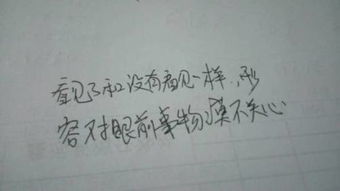 看见了和没有看见一样，形
容对眼前事物漠不关心